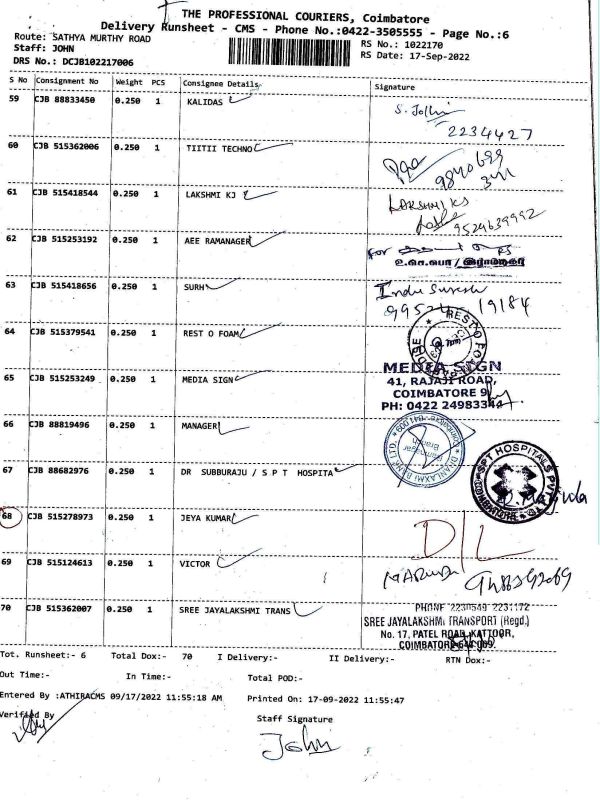 THE PROFESSIONAL COURIERS, Coimbatore
Delivery Runsheet - CMS - Phone No.:0422-3505555 - Page No.:6
Route: SATHYA MURTHY ROAD
RS No.: 1022170
Staff: JOHN
RS Date: 17-Sep-2022
DRS No.: DCJB102217006
S No Consignment No Weight PCS Consignee Details Signature
59 CJB 88833450 0.250 1 KALIDAS
2234427
60 CJB 515362006 0.250 1 TIITII TECHNO
61 CJB 515418544 0.250 1 LAKSHMI KJ
LAKSHMI KS
9524639992
62 CJB 515253192 0.250 1 AEE RAMANAGER
for
63 CJB 515418656 0.250 1 SURH
Indu Suresh
19184
64 CJB 515379541 0.250 1 REST O FOAM
REST O FOAM
65 CJB 515253249 0.250 1 MEDIA SIGN
MEDIA SIGN
41, RAJAJI ROAD,
COIMBATORE 9
PH: 0422 24983344
66 CJB 88819496 0.250 1 MANAGER
67 CJB 88682976 0.250 1 DR SUBBURAJU / S P T HOSPITA
SPT HOSPITALS PVT
COIMBATORE
68 CJB 515278973 0.250 1 JEYA KUMAR
D/L
69 CJB 515124613 0.250 1 VICTOR
70 CJB 515362007 0.250 1 SREE JAYALAKSHMI TRANS
PHONE 2230549 2231172
SREE JAYALAKSHMI TRANSPORT (Regd.)
No. 17, PATEL ROAD, KATTOOR,
COIMBATORE-641 009.
Tot. Runsheet:- 6 Total Dox:- 70 I Delivery:- II Delivery:- RTN Dox:-
Out Time:- In Time:- Total POD:-
Entered By :ATHIRACMS 09/17/2022 11:55:18 AM Printed On: 17-09-2022 11:55:47
Verified By
Staff Signature
John